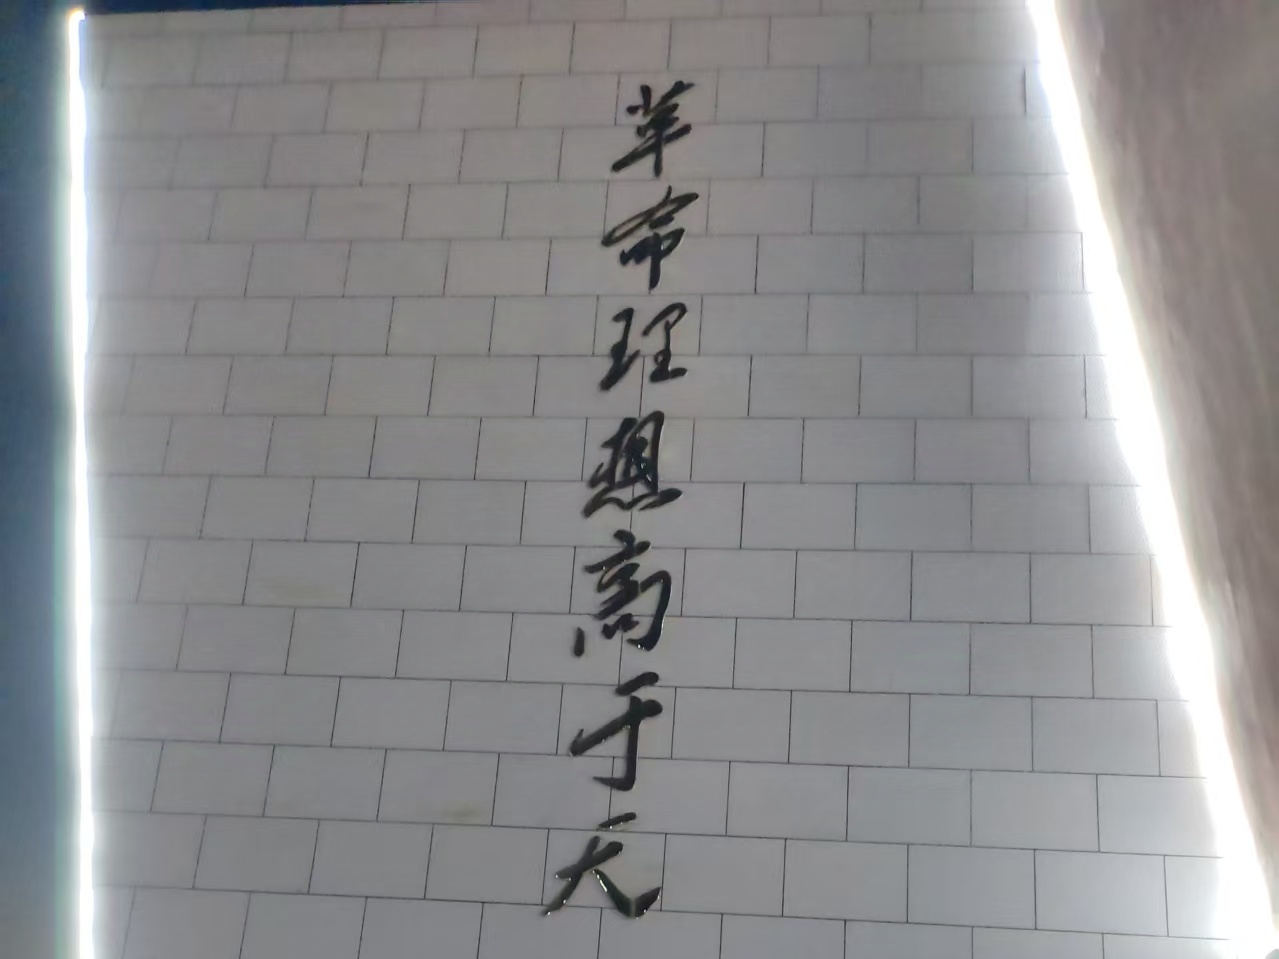 革命理想高于天